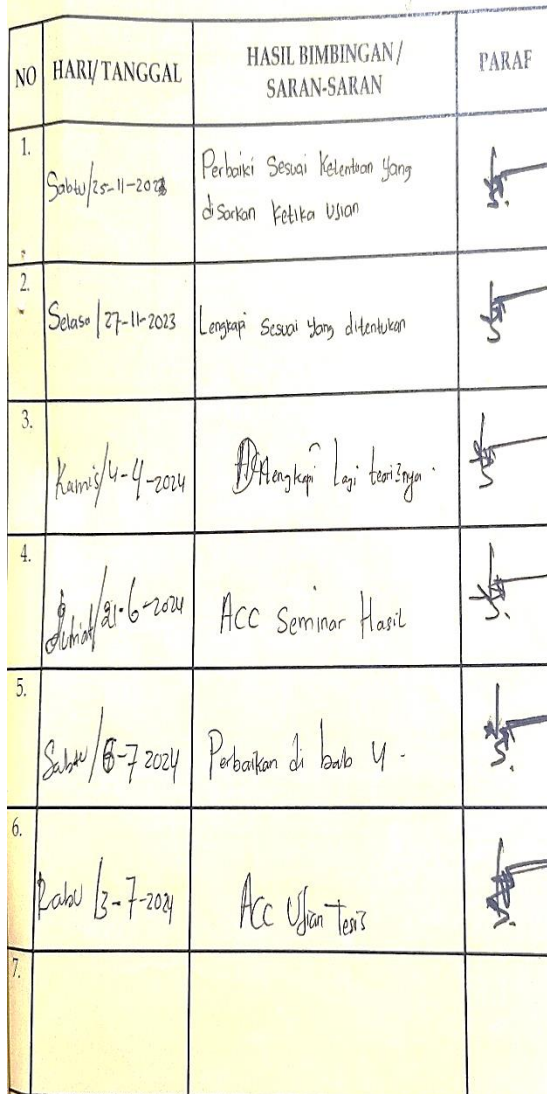 NO HARI/TANGGAL HASIL BIMBINGAN/ PARAF
SARAN-SARAN
1.
Sabtu/25-11-2023 Perbaiki Sesuai Ketentuan yang
disarkan ketika Usian
2.
Selasa/27-11-2023 Lengkapi Sesuai yang ditentukan
3.
Kamis/4-4-2024 Mengkapi Lagi teorinya.
4.
Jumat/21-6-2024 ACC Seminar Hasil
5.
Sabtu/6-7 2024 Perbaikan di bab 4.
6.
Rabu/3-7-2024 ACC Ujian Tesis
7.